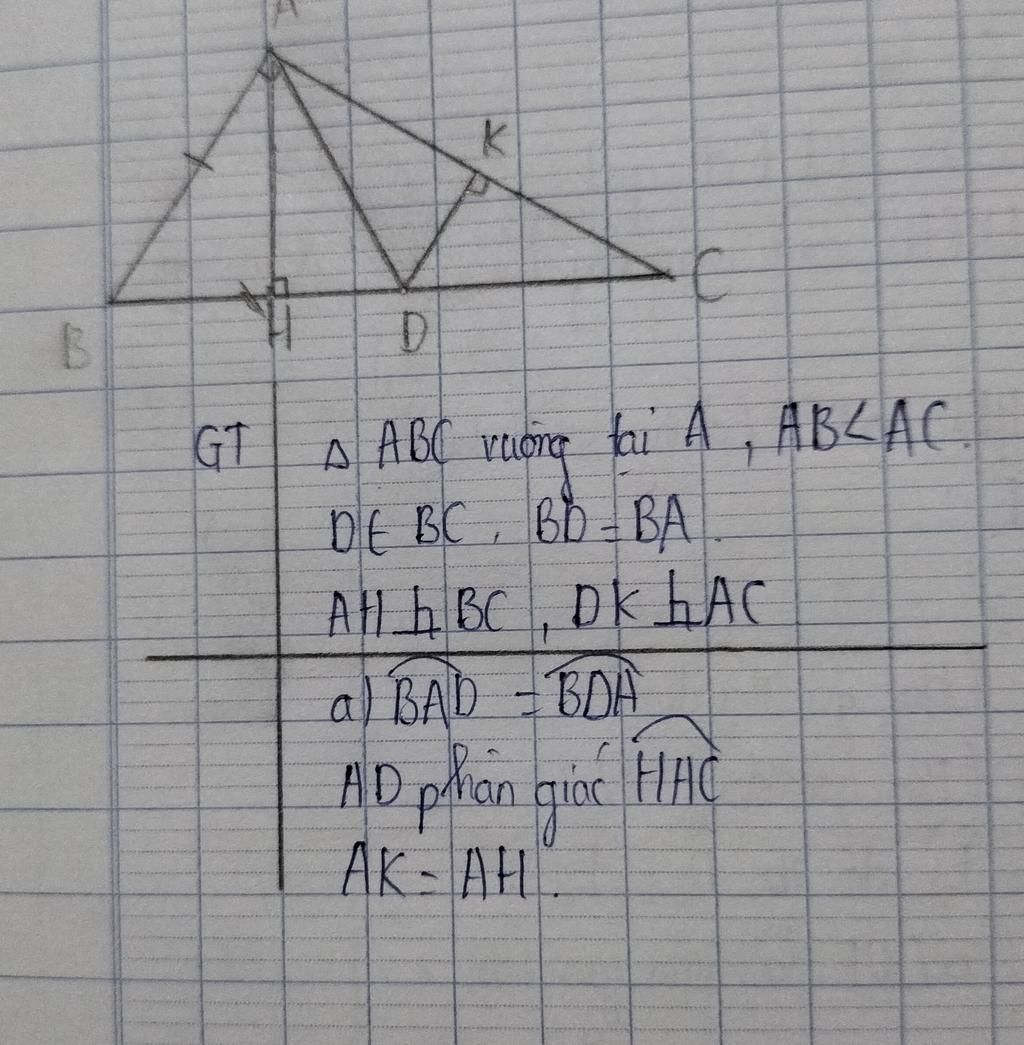 A
K
C
B
H
D
GT Δ ABC vuông tại A, AB < AC.
D ∈ BC, BD = BA.
AH ⊥ BC, DK ⊥ AC
a) BAD = BDA
AD phân giác HAC
AK = AH.